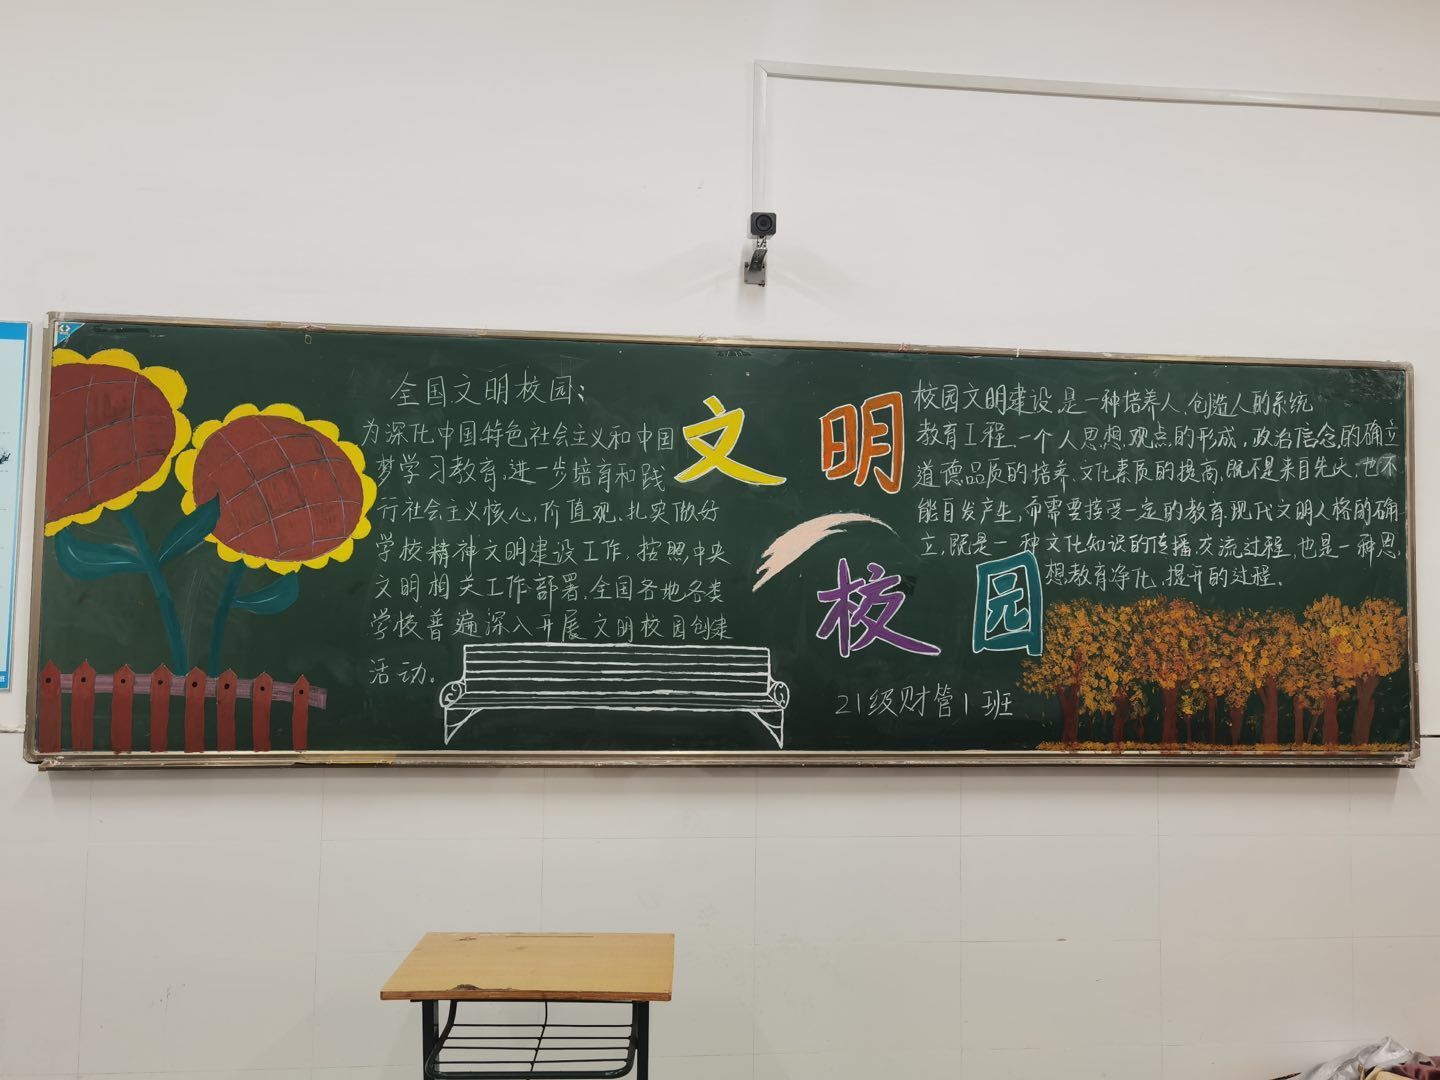 全国文明校园：
为深化中国特色社会主义和中国
梦学习教育，进一步培育和践
行社会主义核心价值观，扎实做好
学校精神文明建设工作，按照中央
文明相关工作部署，全国各地各类
学校普遍深入开展文明校园创建
活动。
文明
校园
校园文明建设，是一种培养人、创造人的系统
教育工程，一个人思想观点的形成，政治信念的确立
道德品质的培养、文化素质的提高，既不是来自先天，也不
能自发产生，而需要接受一定的教育，现代文明人格的确
立，既是一种文化知识的传播、交流过程，也是一种思
想教育净化、提升的过程。
21级财管1班